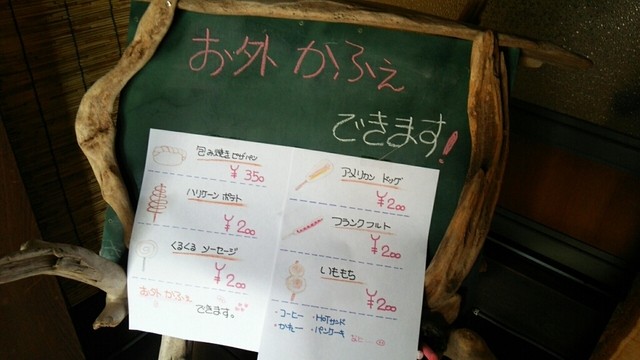 お外 かふぇ
できます!
包み焼きピザパン
¥350
ハリケーン ポテト
¥200
くるくる ソーセージ
¥200
お外 かふぇ
できます。
アメリカン ドッグ
¥200
フランクフルト
¥200
いももち
¥200
・コーヒー ・HOTサンド
・カレー ・パンケーキ